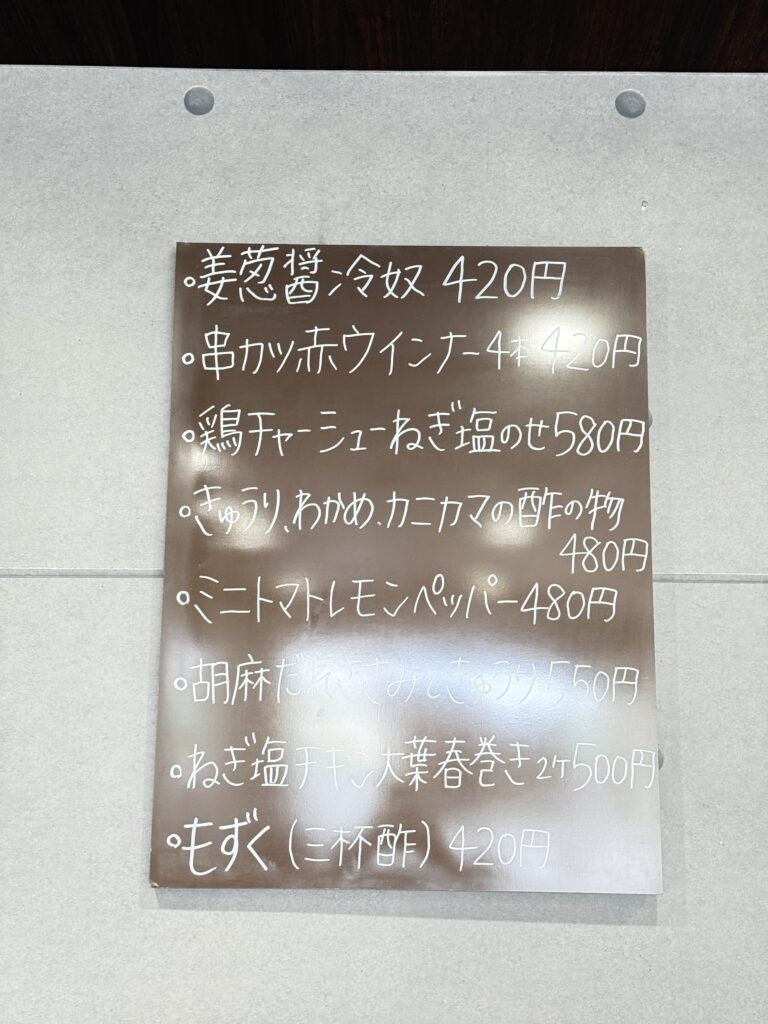 ○姜葱醤冷奴 420円
○串カツ赤ウインナー4本 420円
○鶏チャーシューねぎ塩のせ580円
○きゅうり、わかめ、カニカマの酢の物
480円
○ミニトマトレモンペッパー480円
○胡麻だれささみときゅうり550円
○ねぎ塩チキン大葉春巻き2ケ500円
○もずく(三杯酢) 420円